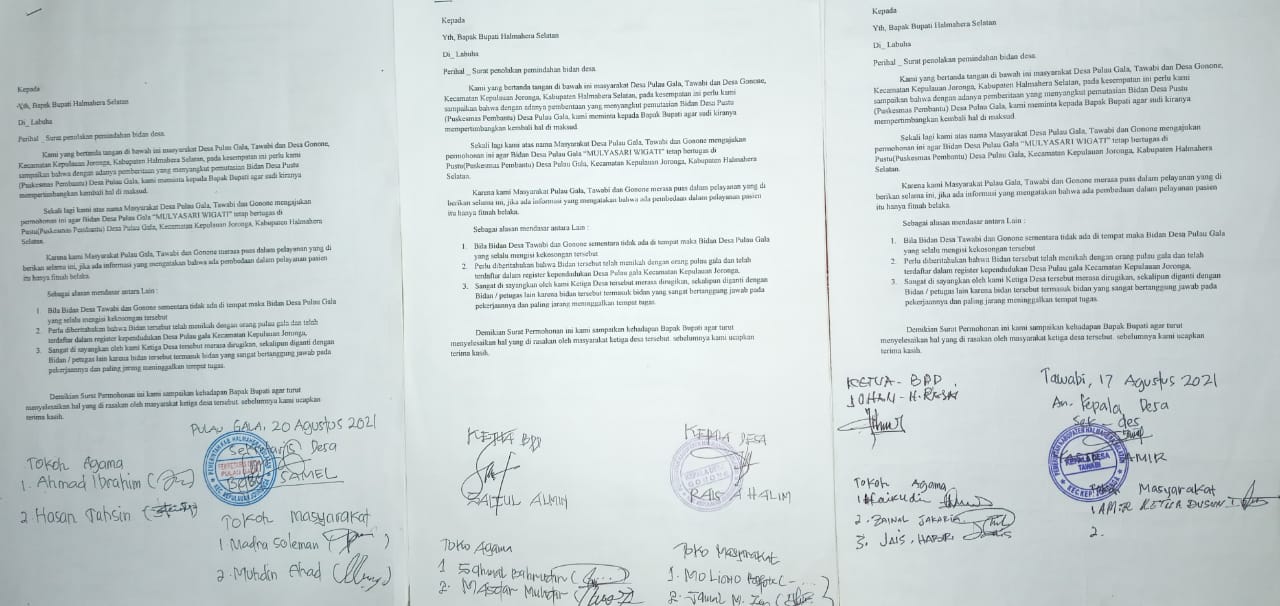 Kepada
Yth, Bapak Bupati Halmahera Selatan
Di_ Labuha
Perihal _ Surat penolakan pemindahan bidan desa.
Kami yang bertanda tangan di bawah ini masyarakat Desa Pulau Gala, Tawabi dan Desa Gonone,
Kecamatan Kepulauan Joronga, Kabupaten Halmahera Selatan, pada kesempatan ini perlu kami
sampaikan bahwa dengan adanya pemberitaan yang menyangkut pemutasian Bidan Desa Pustu
(Puskesmas Pembantu) Desa Pulau Gala, kami meminta kepada Bapak Bupati agar sudi kiranya
mempertimbangkan kembali hal di maksud.
Sekali lagi kami atas nama Masyarakat Desa Pulau Gala, Tawabi dan Gonone mengajukan
permohonan ini agar Bidan Desa Pulau Gala "MULYASARI WIGATI" tetap bertugas di
Pustu(Puskesmas Pembantu) Desa Pulau Gala, Kecamatan Kepulauan Joronga, Kabupaten Halmahera
Selatan.
Karena kami Masyarakat Pulau Gala, Tawabi dan Gonone merasa puas dalam pelayanan yang di
berikan selama ini, jika ada informasi yang mengatakan bahwa ada pembedaan dalam pelayanan pasien
itu hanya fitnah belaka.
Sebagai alasan mendasar antara Lain :
1. Bila Bidan Desa Tawabi dan Gonone sementara tidak ada di tempat maka Bidan Desa Pulau Gala
yang selalu mengisi kekosongan tersebut
2. Perlu diberitahukan bahwa Bidan tersebut telah menikah dengan orang pulau gala dan telah
terdaftar dalam register kependudukan Desa Pulau gala Kecamatan Kepulauan Joronga,
3. Sangat di sayangkan oleh kami Ketiga Desa tersebut merasa dirugikan, sekalipun diganti dengan
Bidan / petugas lain karena bidan tersebut termasuk bidan yang sangat bertanggung jawab pada
pekerjaannya dan paling jarang meninggalkan tempat tugas.
Demikian Surat Permohonan ini kami sampaikan kehadapan Bapak Bupati agar turut
menyelesaikan hal yang di rasakan oleh masyarakat ketiga desa tersebut. sebelumnya kami ucapkan
terima kasih.
PULAU GALA, 20 Agustus 2021
Sekretaris Desa
SAMEL
Tokoh Agama
1. Ahmad Ibrahim
2. Hasan Tahsin
Tokoh Masyarakat
1 Madra Soleman
2. Muhdin Ahad
Kepada
Yth, Bapak Bupati Halmahera Selatan
Di_ Labuha
Perihal _ Surat penolakan pemindahan bidan desa.
Kami yang bertanda tangan di bawah ini masyarakat Desa Pulau Gala, Tawabi dan Desa Gonone,
Kecamatan Kepulauan Joronga, Kabupaten Halmahera Selatan, pada kesempatan ini perlu kami
sampaikan bahwa dengan adanya pemberitaan yang menyangkut pemutasian Bidan Desa Pustu
(Puskesmas Pembantu) Desa Pulau Gala, kami meminta kepada Bapak Bupati agar sudi kiranya
mempertimbangkan kembali hal di maksud.
Sekali lagi kami atas nama Masyarakat Desa Pulau Gala, Tawabi dan Gonone mengajukan
permohonan ini agar Bidan Desa Pulau Gala "MULYASARI WIGATI" tetap bertugas di
Pustu(Puskesmas Pembantu) Desa Pulau Gala, Kecamatan Kepulauan Joronga, Kabupaten Halmahera
Selatan.
Karena kami Masyarakat Pulau Gala, Tawabi dan Gonone merasa puas dalam pelayanan yang di
berikan selama ini, jika ada informasi yang mengatakan bahwa ada pembedaan dalam pelayanan pasien
itu hanya fitnah belaka.
Sebagai alasan mendasar antara Lain :
1. Bila Bidan Desa Tawabi dan Gonone sementara tidak ada di tempat maka Bidan Desa Pulau Gala
yang selalu mengisi kekosongan tersebut
2. Perlu diberitahukan bahwa Bidan tersebut telah menikah dengan orang pulau gala dan telah
terdaftar dalam register kependudukan Desa Pulau gala Kecamatan Kepulauan Joronga,
3. Sangat di sayangkan oleh kami Ketiga Desa tersebut merasa dirugikan, sekalipun diganti dengan
Bidan / petugas lain karena bidan tersebut termasuk bidan yang sangat bertanggung jawab pada
pekerjaannya dan paling jarang meninggalkan tempat tugas.
Demikian Surat Permohonan ini kami sampaikan kehadapan Bapak Bupati agar turut
menyelesaikan hal yang di rasakan oleh masyarakat ketiga desa tersebut. sebelumnya kami ucapkan
terima kasih.
KETUA BPD
SAIFUL ALMIN
KEPALA DESA
KEPALA DESA
GONONE
RAIS A HALIM
Toko Agama
1
2.
Toko Masyarakat
1. MOLIONO
2.
Kepada
Yth, Bapak Bupati Halmahera Selatan
Di_ Labuha
Perihal _ Surat penolakan pemindahan bidan desa.
Kami yang bertanda tangan di bawah ini masyarakat Desa Pulau Gala, Tawabi dan Desa Gonone,
Kecamatan Kepulauan Joronga, Kabupaten Halmahera Selatan, pada kesempatan ini perlu kami
sampaikan bahwa dengan adanya pemberitaan yang menyangkut pemutasian Bidan Desa Pustu
(Puskesmas Pembantu) Desa Pulau Gala, kami meminta kepada Bapak Bupati agar sudi kiranya
mempertimbangkan kembali hal di maksud.
Sekali lagi kami atas nama Masyarakat Desa Pulau Gala, Tawabi dan Gonone mengajukan
permohonan ini agar Bidan Desa Pulau Gala "MULYASARI WIGATI" tetap bertugas di
Pustu(Puskesmas Pembantu) Desa Pulau Gala, Kecamatan Kepulauan Joronga, Kabupaten Halmahera
Selatan.
Karena kami Masyarakat Pulau Gala, Tawabi dan Gonone merasa puas dalam pelayanan yang di
berikan selama ini, jika ada informasi yang mengatakan bahwa ada pembedaan dalam pelayanan pasien
itu hanya fitnah belaka.
Sebagai alasan mendasar antara Lain :
1. Bila Bidan Desa Tawabi dan Gonone sementara tidak ada di tempat maka Bidan Desa Pulau Gala
yang selalu mengisi kekosongan tersebut
2. Perlu diberitahukan bahwa Bidan tersebut telah menikah dengan orang pulau gala dan telah
terdaftar dalam register kependudukan Desa Pulau gala Kecamatan Kepulauan Joronga,
3. Sangat di sayangkan oleh kami Ketiga Desa tersebut merasa dirugikan, sekalipun diganti dengan
Bidan / petugas lain karena bidan tersebut termasuk bidan yang sangat bertanggung jawab pada
pekerjaannya dan paling jarang meninggalkan tempat tugas.
Demikian Surat Permohonan ini kami sampaikan kehadapan Bapak Bupati agar turut
menyelesaikan hal yang di rasakan oleh masyarakat ketiga desa tersebut. sebelumnya kami ucapkan
terima kasih.
KETUA - BPD
Tawabi, 17 Agustus 2021
An. Kepala Desa
Sek - des
KEPALA DESA
TAWABI
KEC KEPULAUAN JORONGA
AMIR
Tokoh Agama
1
2. ZAINAL JAKARIA
3. JAIS. HABARI
Masyarakat
1 AMIR KETUA DUSUN I
2.